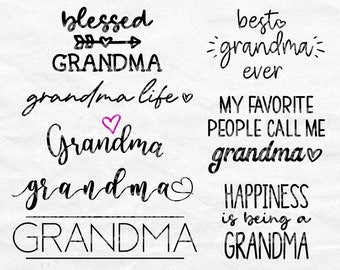 blessed
GRANDMA
grandma life
Grandma
grandma
GRANDMA
best
grandma
ever
MY FAVORITE
PEOPLE CALL ME
grandma
HAPPINESS
is being a
GRANDMA